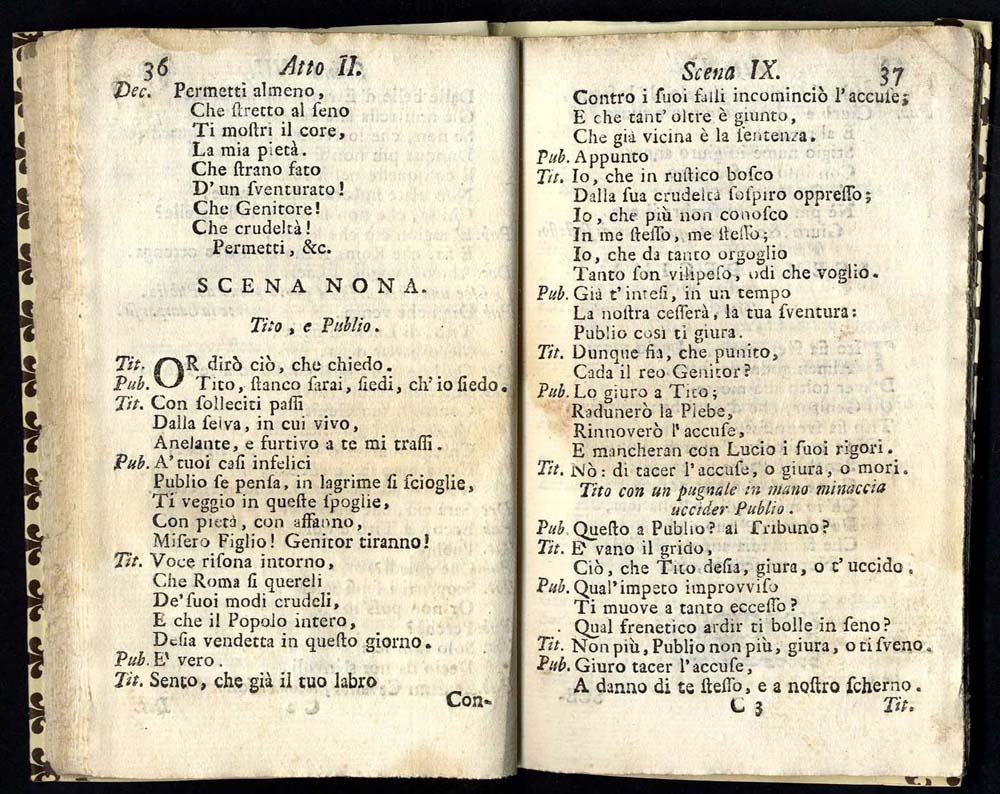 36 Atto II.
Dec. Permetti almeno,
Che ſtretto al ſeno
Ti moſtri il core,
La mia pietà.
Che ſtrano fato
D' un ſventurato!
Che Genitore!
Che crudeltà!
Permetti, &c.
SCENA NONA.
Tito, e Publio.
Tit. OR dirò ciò, che chiedo.
Pub. Tito, ſtanco ſarai, ſiedi, ch' io ſiedo.
Tit. Con ſolleciti paſſi
Dalla ſelva, in cui vivo,
Anelante, e furtivo a te mi traſſi.
Pub. A' tuoi caſi infelici
Publio ſe penſa, in lagrime ſi ſcioglie,
Ti veggio in queſte ſpoglie,
Con pietà, con affanno,
Miſero Figlio! Genitor tiranno!
Tit. Voce riſona intorno,
Che Roma ſi quereli
De' ſuoi modi crudeli,
E che il Popolo intero,
Deſia vendetta in queſto giorno.
Pub. E' vero.
Tit. Sento, che già il tuo labro
Con-
Scena IX. 37
Contro i ſuoi falli incominciò l' accuſe;
E che tant' oltre è giunto,
Che già vicina è la ſentenza.
Pub. Appunto
Tit. Io, che in ruſtico boſco
Dalla ſua crudeltà ſoſpiro oppreſſo;
Io, che più non conoſco
In me ſteſſo, me ſteſſo;
Io, che da tanto orgoglio
Tanto ſon vilipeſo, odi che voglio.
Pub. Già t' inteſi, in un tempo
La noſtra ceſſerà, la tua ſventura:
Publio così ti giura.
Tit. Dunque ſia, che punito,
Cada il reo Genitor?
Pub. Lo giuro a Tito;
Radunerò la Plebe,
Rinnoverò l' accuſe,
E mancheran con Lucio i ſuoi rigori.
Tit. Nò: di tacer l' accuſe, o giura, o mori.
Tito con un pugnale in mano minaccia
uccider Publio.
Pub. Queſto a Publio? al Tribuno?
Tit. E' vano il grido,
Ciò, che Tito deſia, giura, o t' uccido.
Pub. Qual' impeto improvviſo
Ti muove a tanto ecceſſo?
Qual frenetico ardir ti bolle in ſeno?
Tit. Non più, Publio non più, giura, o ti ſveno.
Pub. Giuro tacer l' accuſe,
A danno di te ſteſſo, e a noſtro ſcherno.
C 3 Tit.